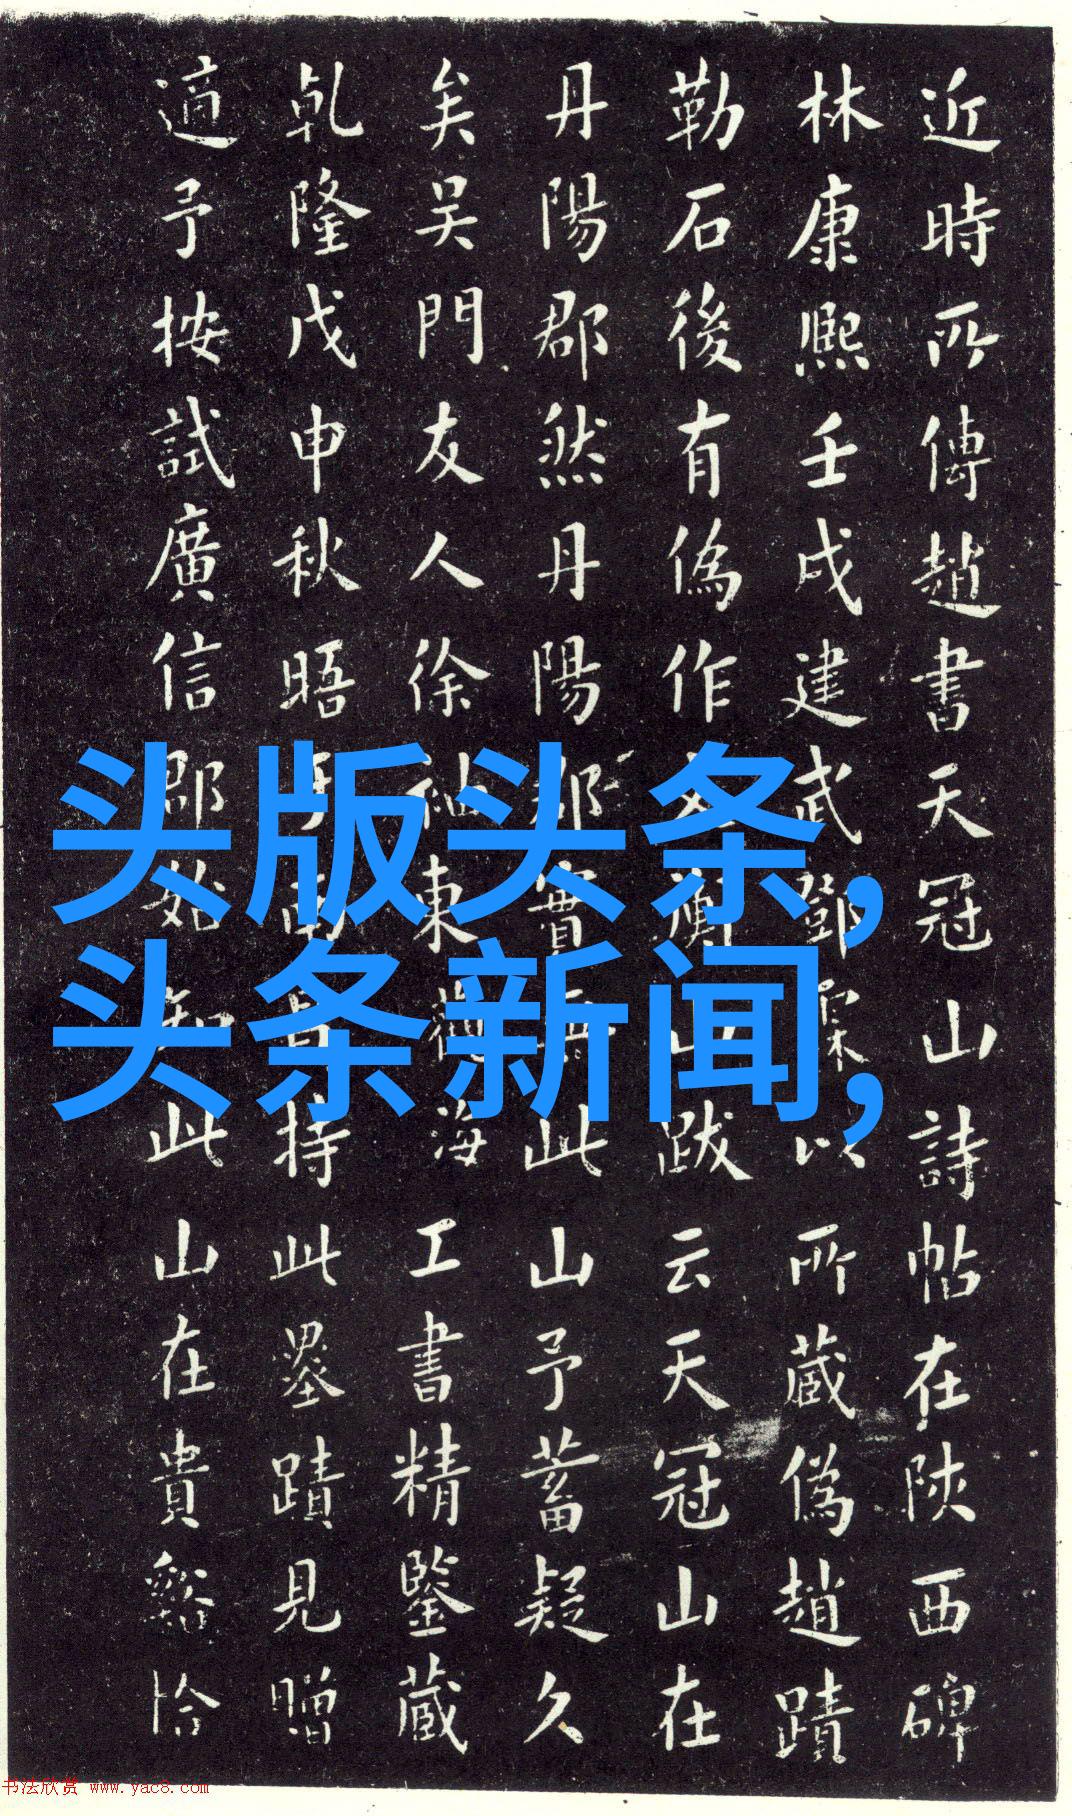 近時所傳趙書天冠山詩帖在陝西碑
林康熙壬戌建武鄧霖以所藏偽趙蹟
勒石後有偽作山跋云天冠山在
丹陽郡然丹陽郡實無此山予蓄疑久
矣吳門友人徐袖東海工書精鑒藏
乹隆戊申秋晤持此墨蹟見贈
適予按試廣信郡始知此山在貴谿恰
头版头条,
头条新闻,
书法欣赏 www.yac8.com